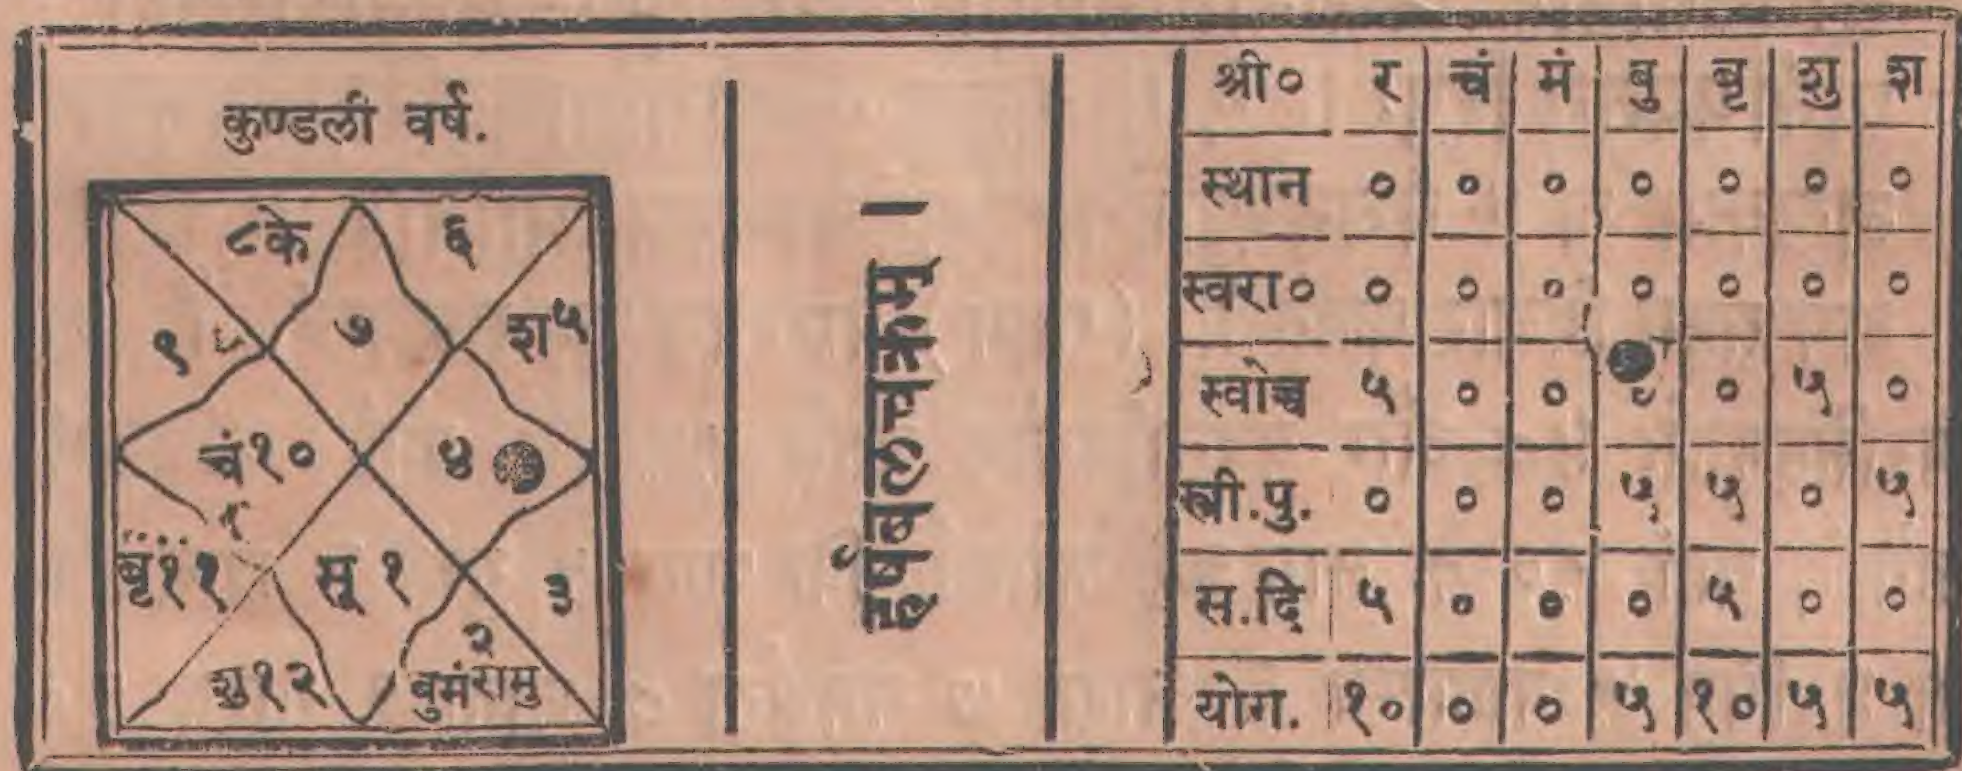 कुण्डली वर्ष.
८के
६
९
७
श५
चं१०
४
बृ११
सू १
३
शु१२
२
बुमंरामु
हर्षबलचक्रम् ।
श्री० र चं मं बु बृ शु श
स्थान ० ० ० ० ० ० ०
स्वरा० ० ० ० ० ० ० ०
स्वोच्च ५ ० ० ० ५ ०
स्त्री.पु. ० ० ० ५ ५ ० ५
स.दि ५ ० ० ० ५ ० ०
योग. १० ० ० ५ १० ५ ५